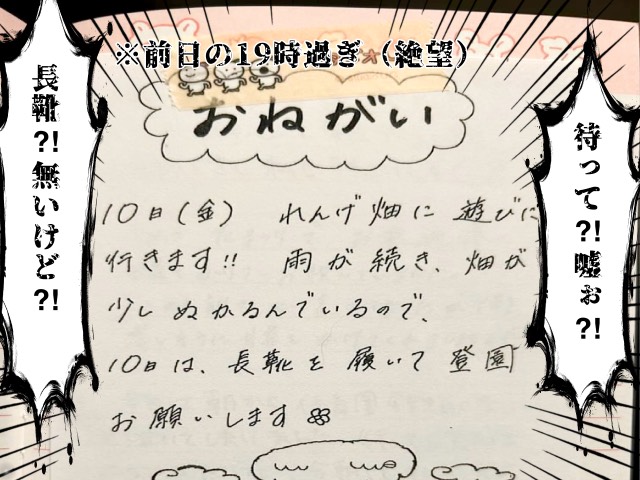 ※前日の19時過ぎ(絶望)
おねがい
待って?!嘘ぉ?!
長靴?!無いけど?!
10日(金) れんげ畑に遊びに
行きます!! 雨が続き、畑が
少しぬかるんでいるので、
10日は、長靴を履いて登園
お願いします